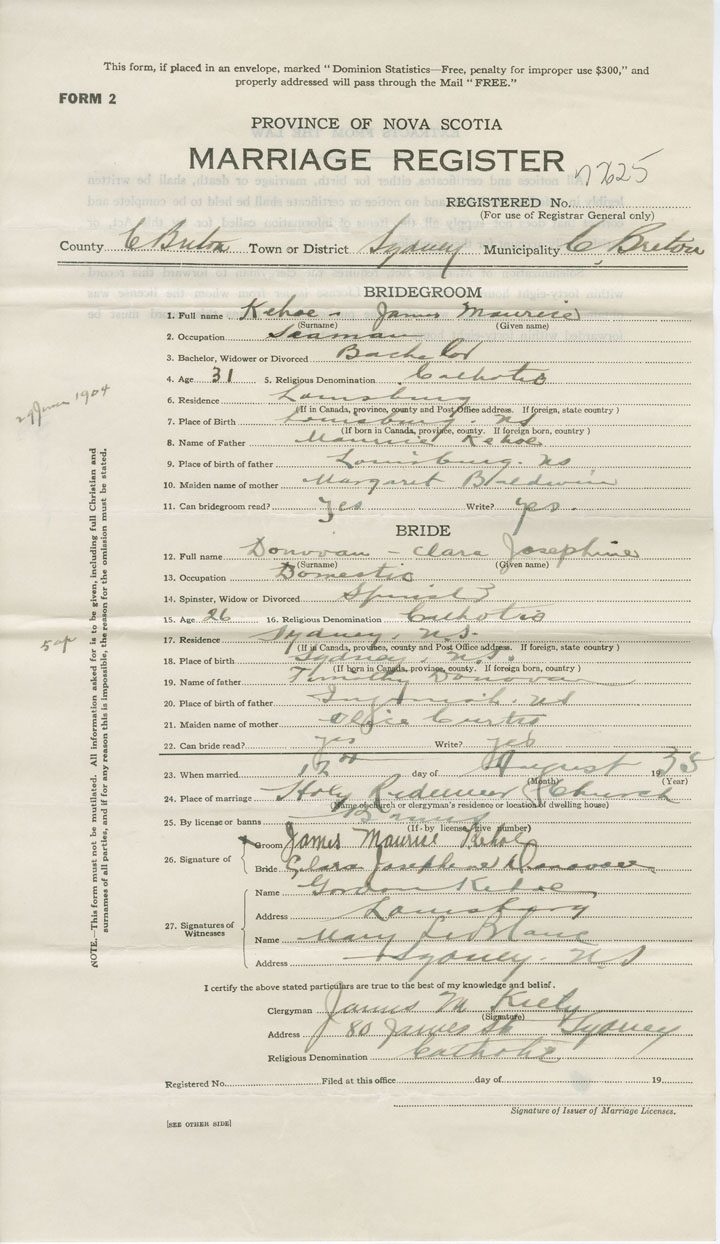 This form, if placed in an envelope, marked "Dominion Statistics—Free, penalty for improper use $300," and
properly addressed will pass through the Mail "FREE."
FORM 2
PROVINCE OF NOVA SCOTIA
MARRIAGE REGISTER
REGISTERED No. 7625
(For use of Registrar General only)
County C Breton Town or District Sydney Municipality C. Breton
BRIDEGROOM
1. Full name Kehoe - James Maurice
(Surname) (Given name)
2. Occupation Seaman
3. Bachelor, Widower or Divorced Bachelor
4. Age 31 5. Religious Denomination Catholic
6. Residence Louisburg
(If in Canada, province, county and Post Office address. If foreign, state country)
7. Place of Birth Louisburg. NS
(If born in Canada, province, county. If foreign born, country)
8. Name of Father Maurice Kehoe
9. Place of birth of father Louisburg. NS
10. Maiden name of mother Margaret Baldwin
11. Can bridegroom read? yes Write? yes.
BRIDE
12. Full name Donovan - Clara Josephine
(Surname) (Given name)
13. Occupation Domestic
14. Spinster, Widow or Divorced Spinst
15. Age 26 16. Religious Denomination Catholic
17. Residence Sydney, N.S.
(If in Canada, province, county and Post Office address. If foreign, state country)
18. Place of birth Sydney, N.S.
(If born in Canada, province, county. If foreign born, country)
19. Name of father Timothy Donovan
20. Place of birth of father Ingonish. NS
21. Maiden name of mother Curtis
22. Can bride read? yes Write? yes
23. When married 12th day of August 1935
(Month) (Year)
24. Place of marriage Holy Redeemer Church
(Name of church or clergyman's residence or location of dwelling house)
25. By license or banns Banns
(If by license, give number)
26. Signature of
Groom James Maurice Kehoe
Bride Clara Josephine Donovan
27. Signatures of Witnesses
Name Gordon Kehoe
Address Louisburg
Name Mary LeBlanc
Address Sydney. N.S
I certify the above stated particulars are true to the best of my knowledge and belief.
Clergyman James M Kiely
(Signature)
Address 80 James St Sydney
Religious Denomination Catholic
Registered No. Filed at this office day of 19
Signature of Issuer of Marriage Licenses.
[SEE OTHER SIDE]
NOTE.—This form must not be mutilated. All information asked for is to be given, including full Christian and
surnames of all parties, and if for any reason this is impossible, the reason for the omission must be stated.
29 June 1904